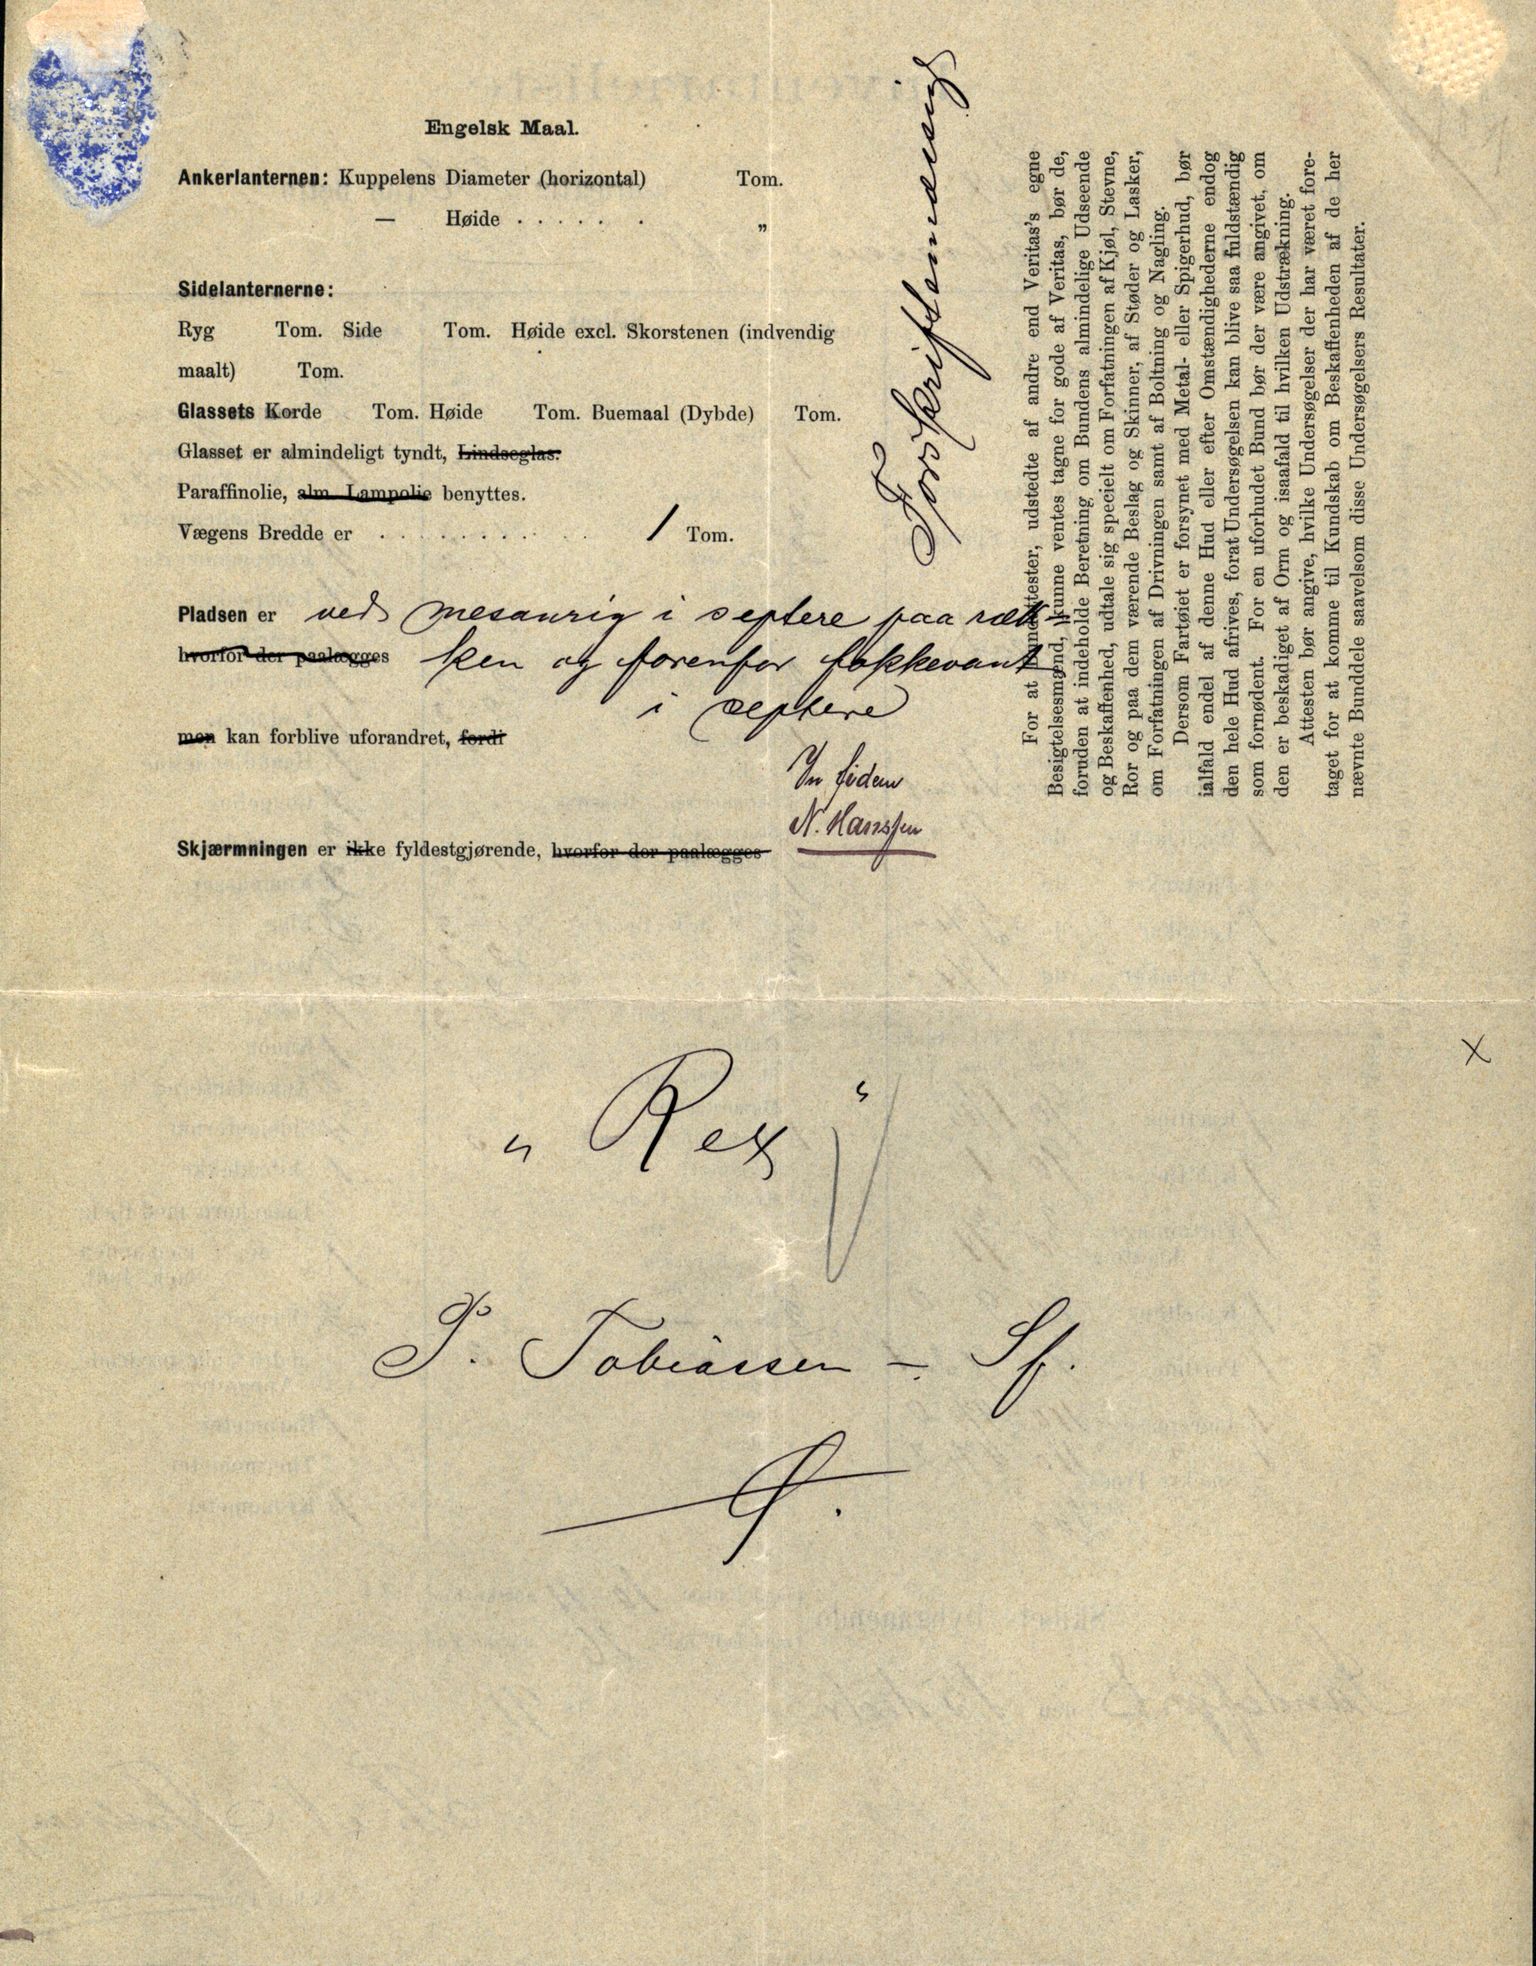 Engelsk Maal.
Ankerlanternen: Kuppelens Diameter (horizontal) Tom.
— Høide . . . . . . „
Sidelanternerne:
Ryg Tom. Side Tom. Høide excl. Skorstenen (indvendig
maalt) Tom.
Glassets Korde Tom. Høide Tom. Buemaal (Dybde) Tom.
Glasset er almindeligt tyndt, Lindseglas.
Paraffinolie, alm. Lampolie benyttes.
Vægens Bredde er . . . . . . . . . . 1 Tom.
Pladsen er ved mesanrig i septere paa ræk-
hvorfor der paalægges ken og forenfor fokkevant
i septere
men kan forblive uforandret, fordi
In fidem
N. Hanssen
Skjærmningen er ikke fyldestgjørende, hvorfor der paalægges
Forskriftsmæssig
For at Bundattester, udstedte af andre end Veritas's egne
Besigtelsesmænd, kunne ventes tagne for gode af Veritas, bør de,
foruden at indeholde Beretning om Bundens almindelige Udseende
og Beskaffenhed, udtale sig specielt om Forfatningen af Kjøl, Stevne,
Ror og paa dem værende Beslag og Skinner, af Støder og Lasker,
om Forfatningen af Drivningen samt af Boltning og Nagling.
Dersom Fartøiet er forsynet med Metal- eller Spigerhud, bør
ialfald endel af denne Hud eller efter Omstændighederne endog
den hele Hud afrives, forat Undersøgelsen kan blive saa fuldstændig
som fornødent. For en uforhudet Bund bør der være angivet, om
den er beskadiget af Orm og isaafald til hvilken Udstrækning.
Attesten bør angive, hvilke Undersøgelser der har været fore-
taget for at komme til Kundskab om Beskaffenheden af de her
nævnte Bunddele saavelsom disse Undersøgelsers Resultater.
X
„Rex"
P. Tobiassen – Sf.